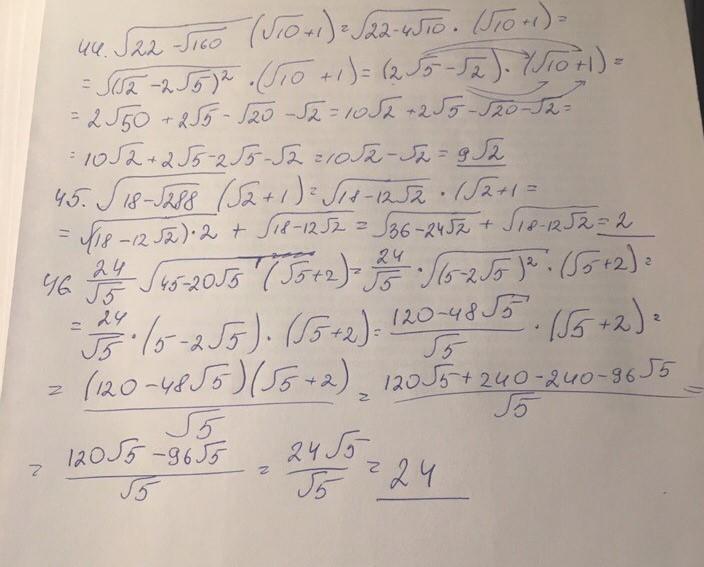 44. √(22 - √160) (√10 + 1) = √(22 - 4√10) · (√10 + 1) =
= √(√2 - 2√5)² · (√10 + 1) = (2√5 - √2) · (√10 + 1) =
= 2√50 + 2√5 - √20 - √2 = 10√2 + 2√5 - √20 - √2 =
= 10√2 + 2√5 - 2√5 - √2 = 10√2 - √2 = 9√2
45. √(18 - √288) (√2 + 1) = √(18 - 12√2) · (√2 + 1 =
= √((18 - 12√2) · 2) + √(18 - 12√2) = √(36 - 24√2) + √(18 - 12√2) = 2
46 24/√5 √(45 - 20√5) (√5 + 2) = 24/√5 · √(5 - 2√5)² · (√5 + 2) =
= 24/√5 · (5 - 2√5) · (√5 + 2) = (120 - 48√5)/√5 · (√5 + 2) =
= (120 - 48√5)(√5 + 2)/√5 = (120√5 + 240 - 240 - 96√5)/√5 =
= (120√5 - 96√5)/√5 = 24√5/√5 = 24